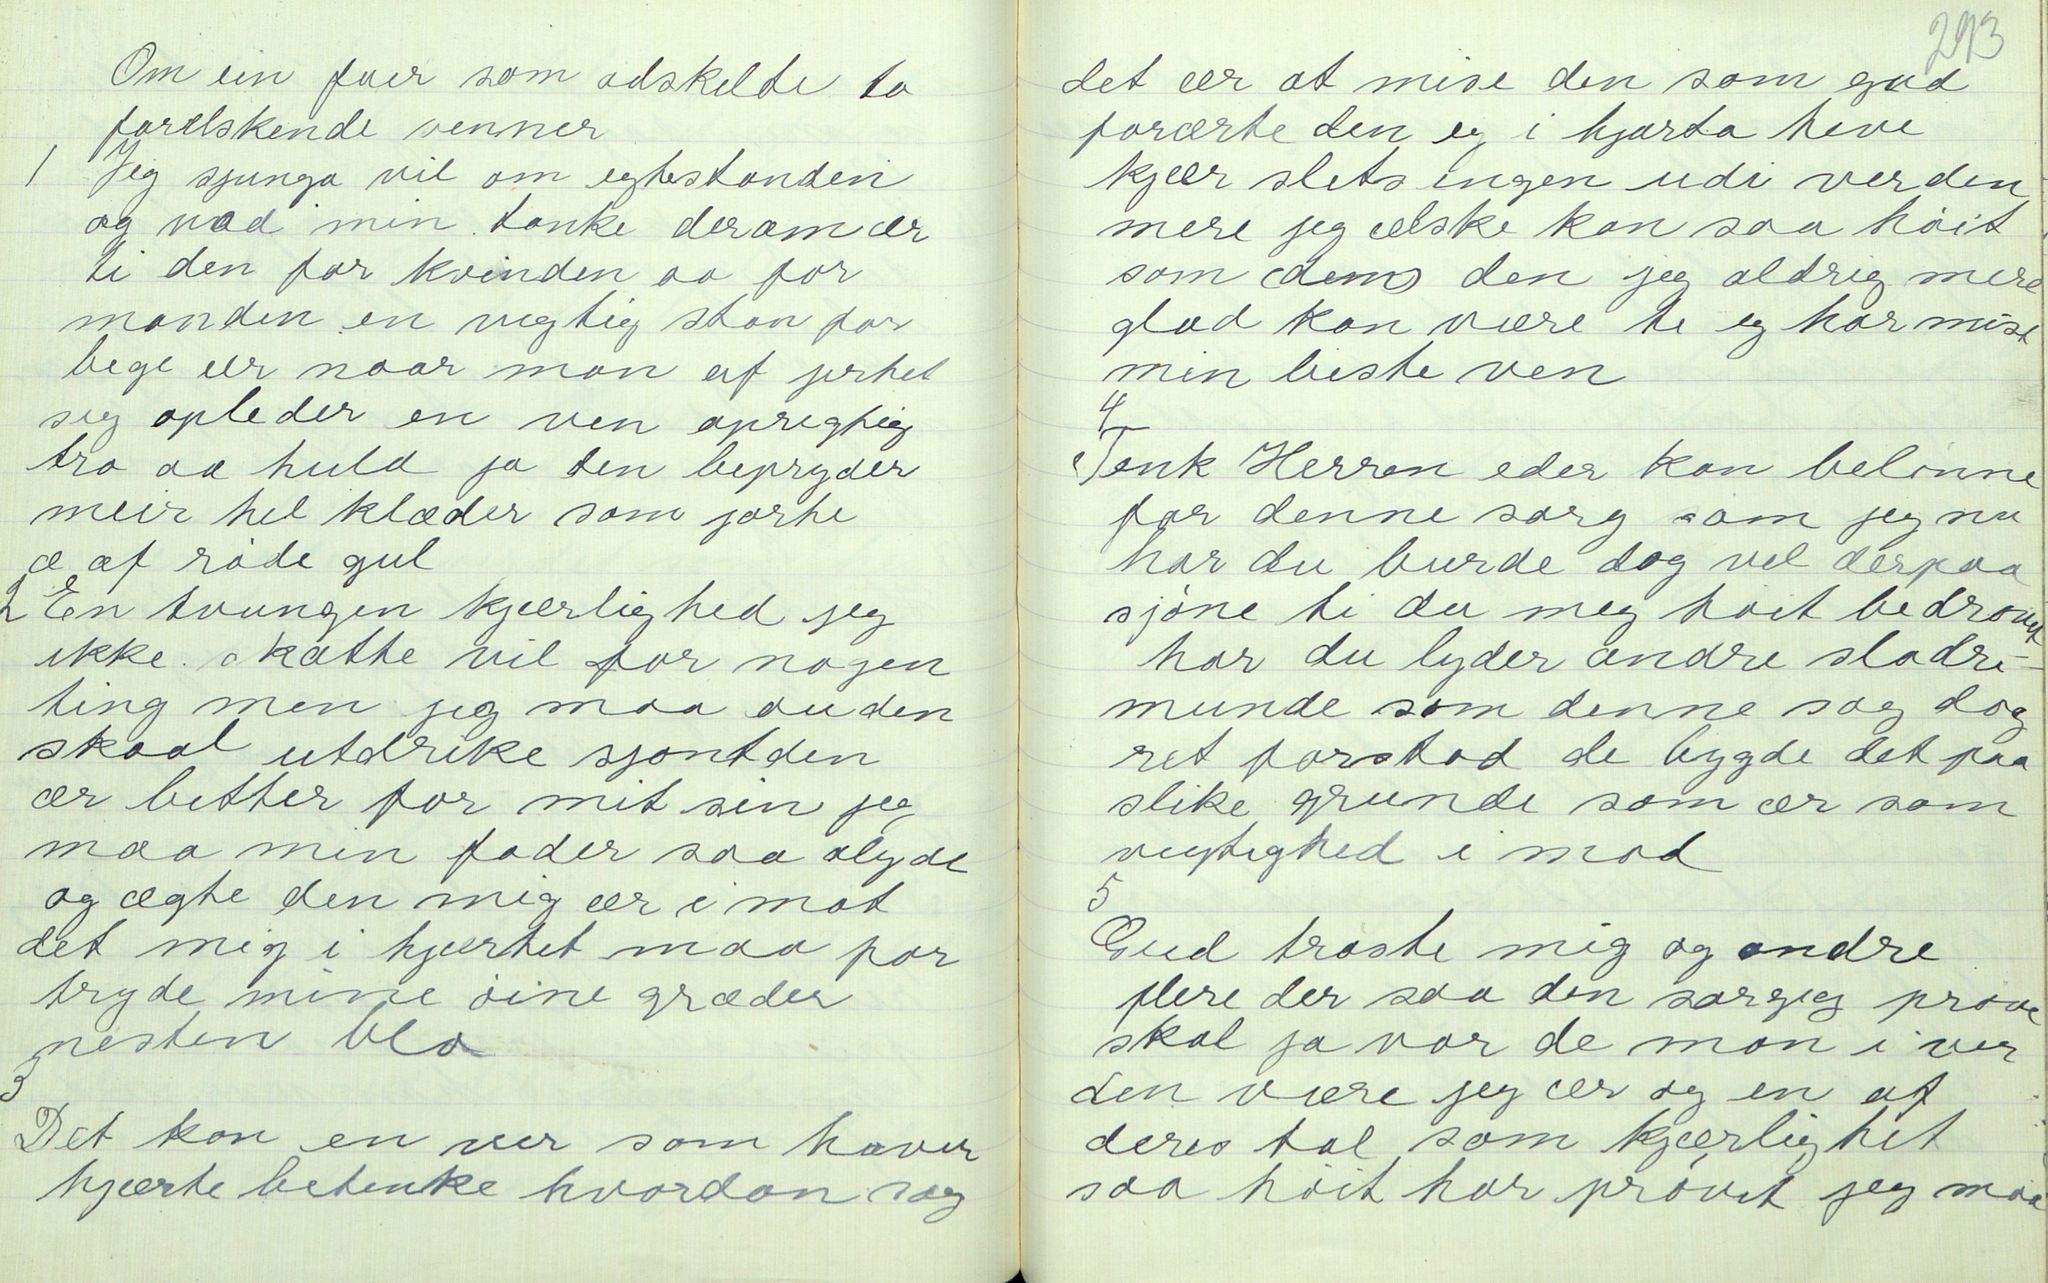 Om ein faer som adskelte to
forelskende venner
1 Jeg sjunga vil om egtestanden
og vad min tanke derom ær
ti den for kvinden aa for
manden en vegtig stan for
bege er naar man af jertet
sig opleder en ven opregtig
tro aa huld ja den bepryder
meir hel klæder som jorte
æ af røde gul
2 En tvungen kjærlighed jeg
ikke skatte vil for nogen
ting men jeg maa auden
skaal utdrike sjøntden
ær better for mit sin jeg
maa min fader saa alyde
og ægte den mig ær i mot
det mig i hjærtet maa for
tryde mine øine græder
nesten blo
3
Det kan en ver som haver
hjærte betenke hvordan sag
293
det ær at mise den som gud
forærte den eg i hjarta heve
kjær slets ingen udi verden
mere jeg ælske kan saa høit
som (dem) den jeg aldrig mere
glad kan være te eg har mist
min beste ven
4
Tenk Herren eder kan belønne
for denne sorg som jeg nu
har du burde dog vel derpaa
sjøne ti du meg høit bedrøvet
har du lyder andre sladre-
munde som denne sag dog
ret forstod de bygde det paa
slike grunde som ær som
vegtighed i mod
5
Gud trøste mig og andre
flere der saa den sorgeg prøve
skal ja vor de mon i ver
den være jeg ær og en af
deres tal som kjærlighet
saa høit har prøvet jeg maa